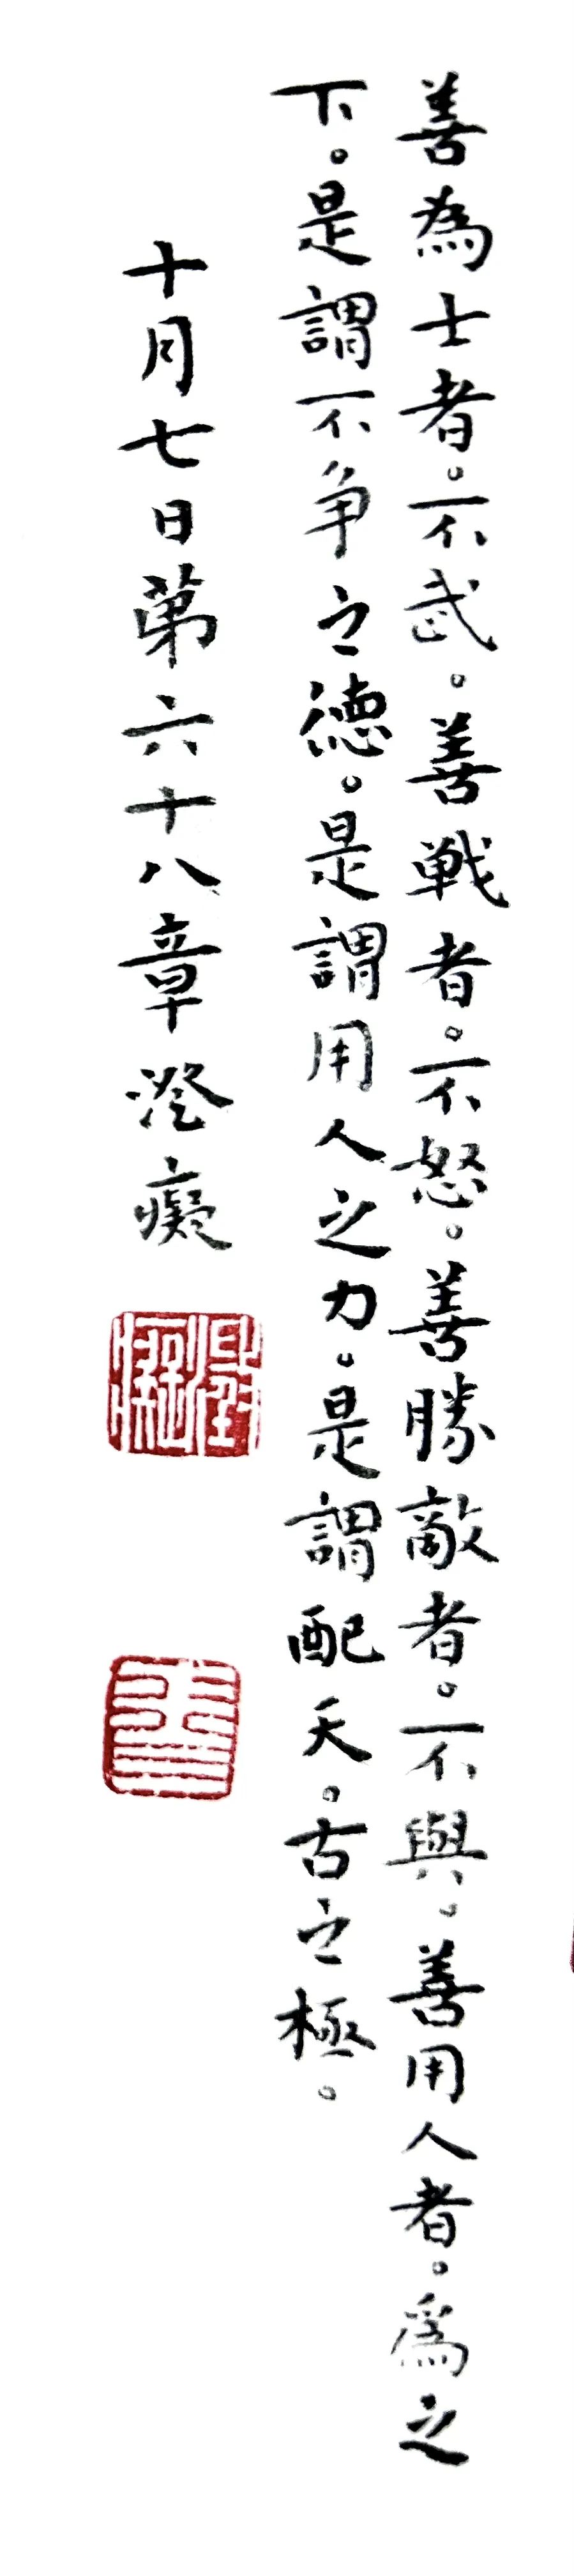 善為士者。不武。善戦者。不怒。善勝敵者。不與。善用人者。為之
下。是謂不争之徳。是謂用人之力。是謂配天。古之極。
十月七日第六十八章澄癡